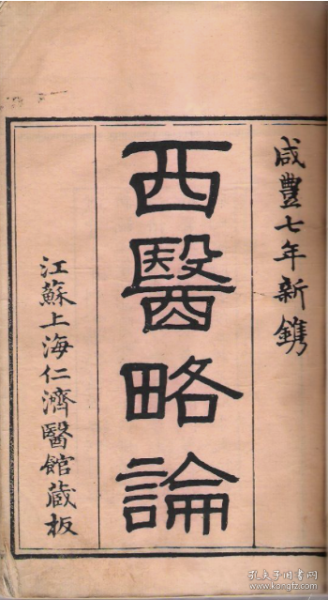 咸豐七年新鐫
西醫略論
江蘇上海仁濟醫館藏板
孔夫子旧书网
www.kongfz.com